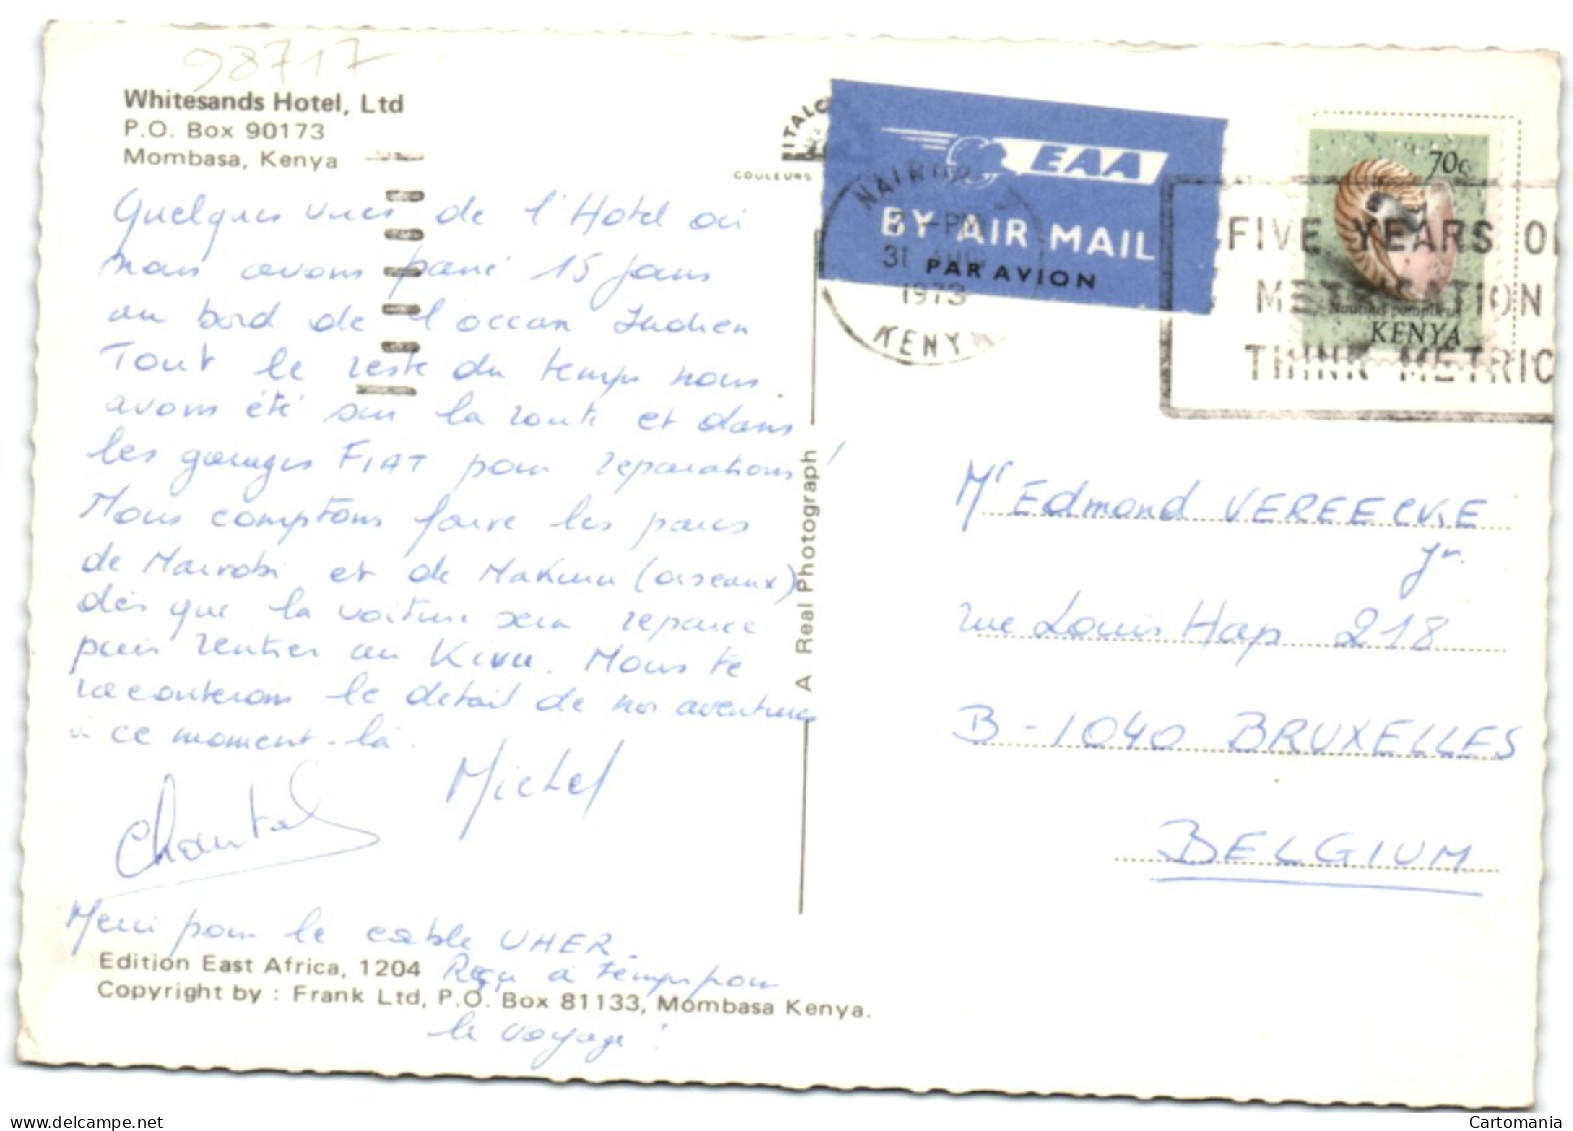 98717
Whitesands Hotel, Ltd
P.O. Box 90173
Mombasa, Kenya
Quelques vues de l'Hotel où
nous avons passé 15 jours
au bord de l'océan Indien
Tout le reste du temps nous
avons été sur la route et dans
les garages FIAT pour reparations!
Nous comptons faire les parcs
de Nairobi et de Nakuru (oiseaux)
dès que la voiture sera reparée
puis rentrer au Kivu. Nous te
raconterons le detail de nos aventures
à ce moment-là.
Michel
Chantal
Merci pour le cable UHER.
Reçu à temps pour
le voyage!
Edition East Africa, 1204
Copyright by : Frank Ltd, P.O. Box 81133, Mombasa Kenya.
A Real Photograph
ITALC
COULEURS
EAA
BY AIR MAIL
PAR AVION
PM
31
1973
KENYA
70c
Nautilus pompilius
KENYA
FIVE YEARS OF
METRICATION
THINK METRIC
Mr Edmond VEREECKE
Jr.
rue Louis Hap 218
B-1040 BRUXELLES
BELGIUM
www.delcampe.net
Cartomania